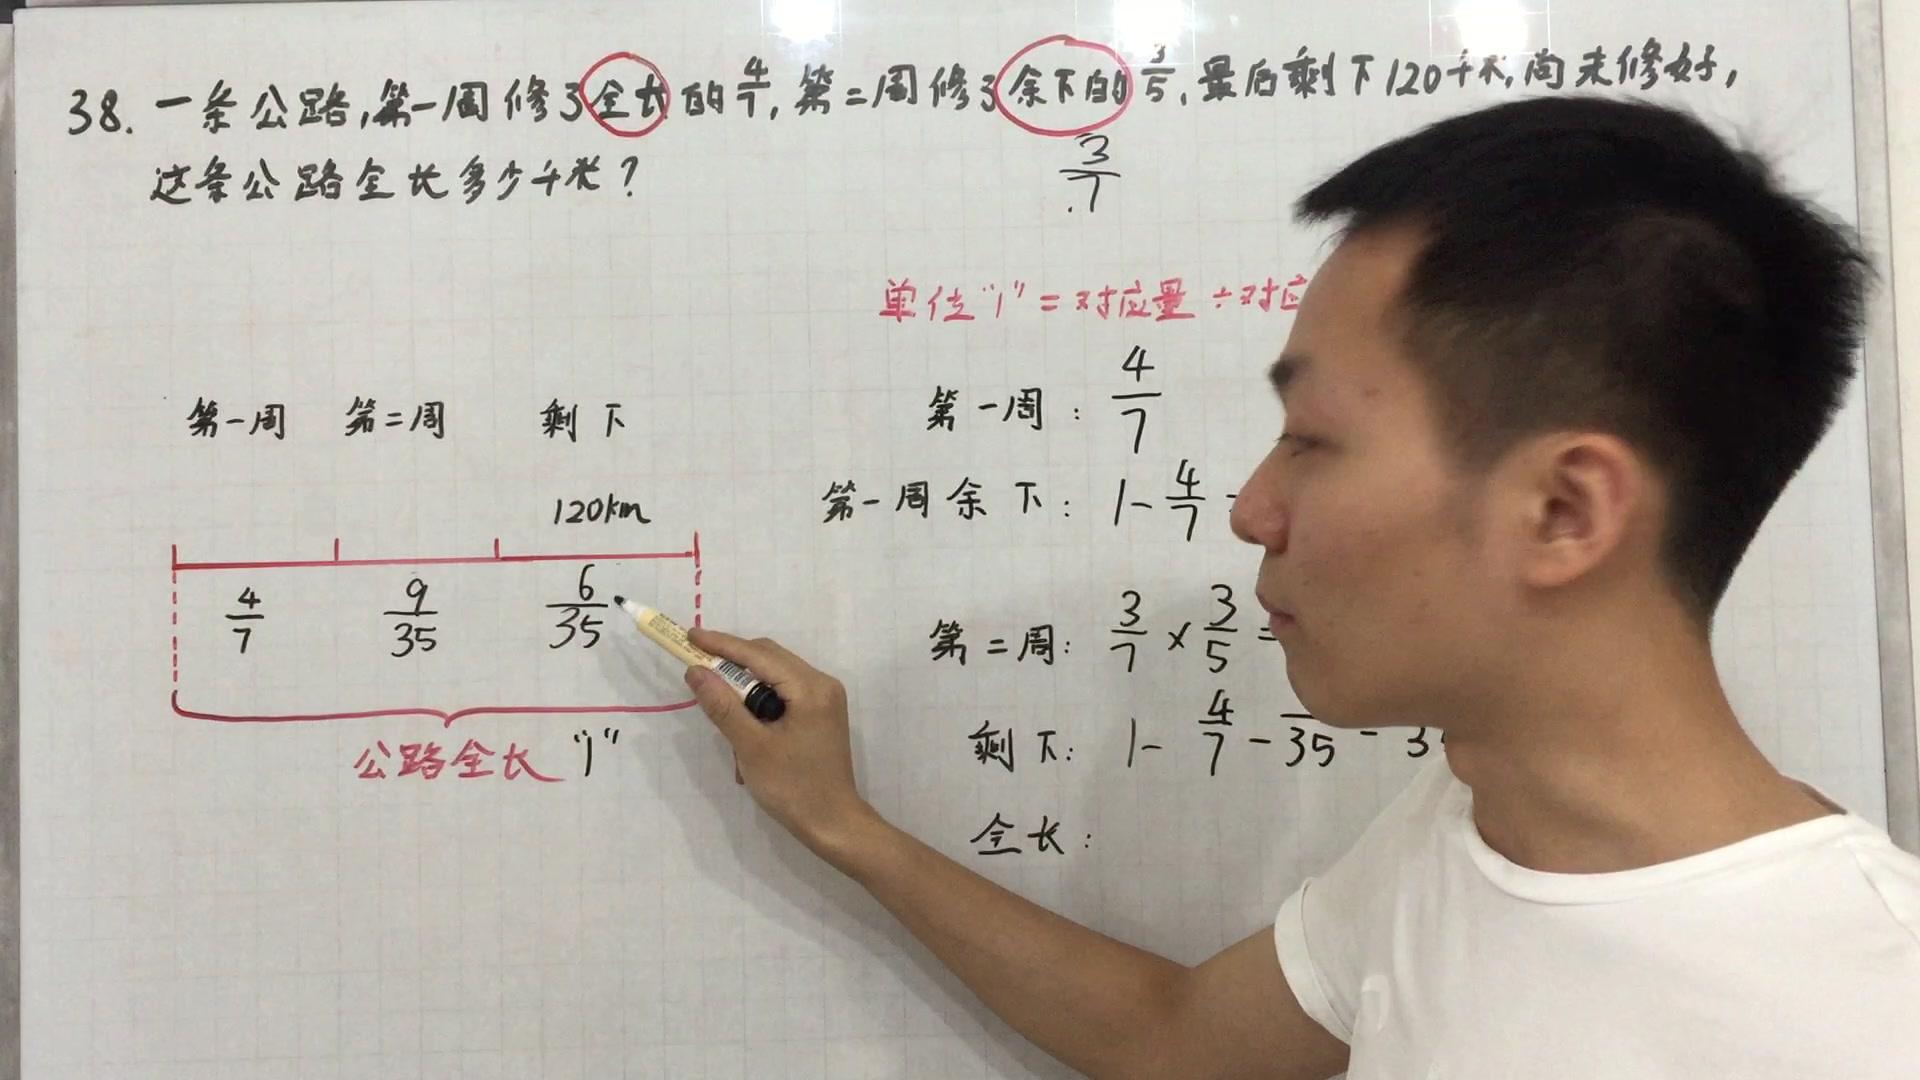 38. 一条公路,第一周修了全长的4/7,第二周修了余下的3/5,最后剩下120千米,尚未修好,
这条公路全长多少千米?
3/7
单位"1"=对应量÷对应
第一周 第二周 剩下
120km
4/7 9/35 6/35
公路全长"1"
第一周: 4/7
第一周余下: 1-4/7
第二周: 3/7×3/5=
剩下: 1-4/7-
全长: